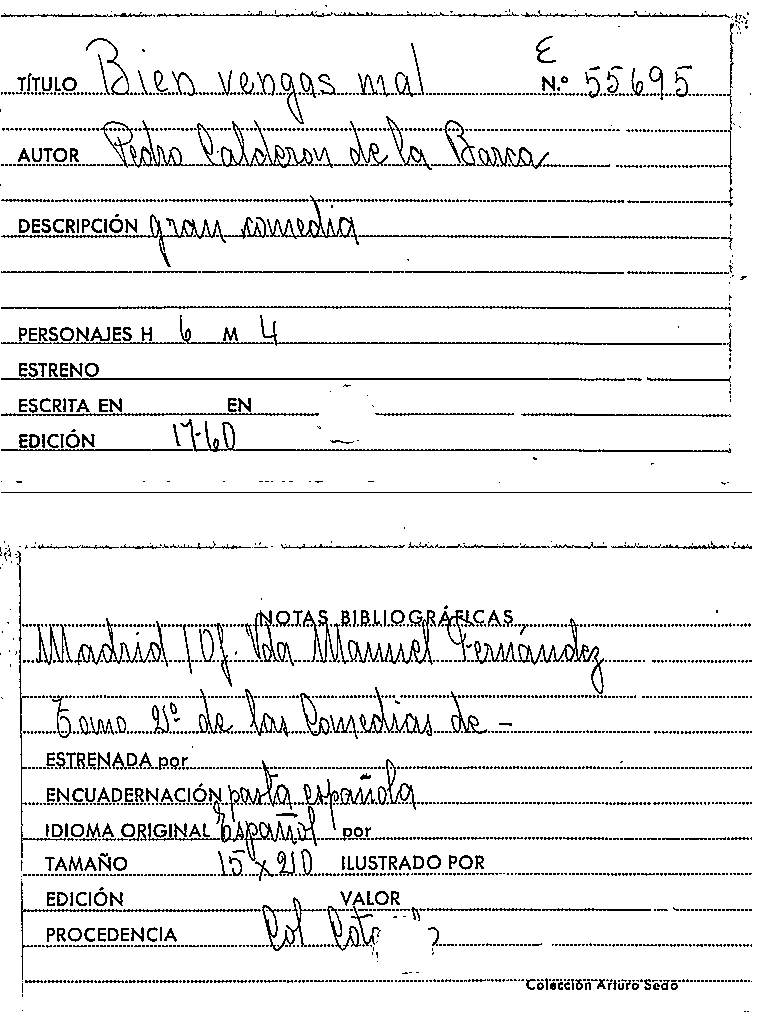 E
TÍTULO Bien vengas mal N.º 55695
AUTOR Pedro Calderon de la Barca
DESCRIPCIÓN gran comedia
PERSONAJES H 6 M 4
ESTRENO
ESCRITA EN EN
EDICIÓN 1760
NOTAS BIBLIOGRÁFICAS
Madrid / Of. Vda Manuel Fernández
Tomo 2º de las Comedias de -
ESTRENADA por
ENCUADERNACIÓN pasta española
IDIOMA ORIGINAL Español por
TAMAÑO 15 x 20 ILUSTRADO POR
EDICIÓN VALOR
PROCEDENCIA Col
Colección Arturo Sedó